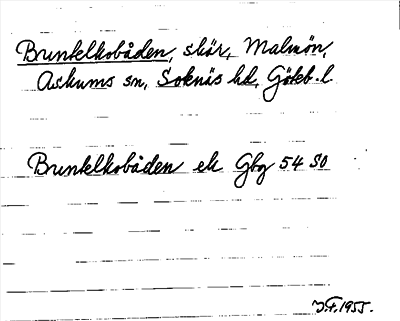 Brunkelkobåden, skär, Malmön,
Askums sn, Soknäs hd, Göteb. l.
Brunkelkobåden ek Gbg 54 SO
J.F. 1955.